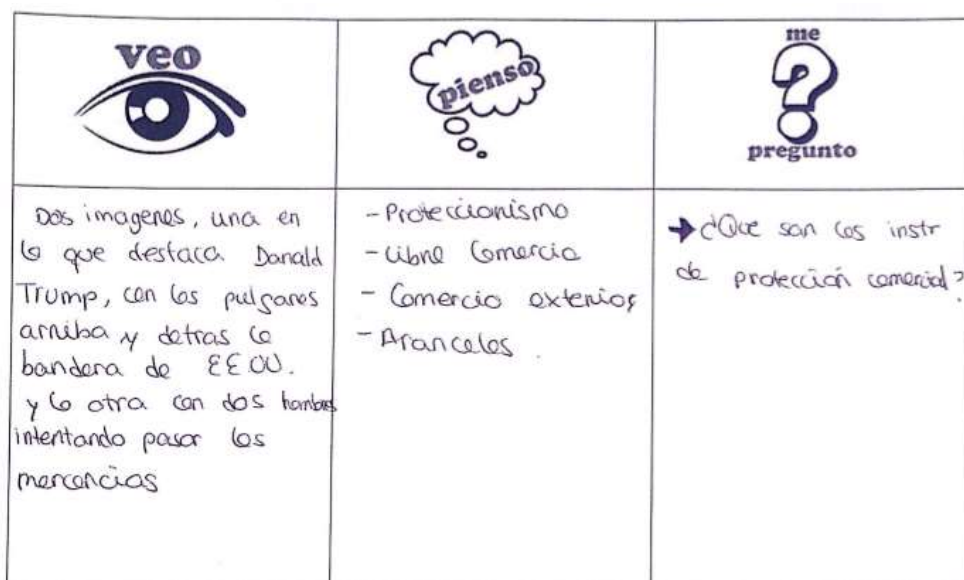 veo
pienso
me
pregunto
Dos imagenes, una en
la que destaca Donald
Trump, con los pulgares
arriba y detras la
bandera de EEUU.
y la otra con dos hombres
intentando pasar las
mercancias
- Proteccionismo
- Libre Comercio
- Comercio exterior
- Aranceles
¿Que son los instr
de protección comercial?